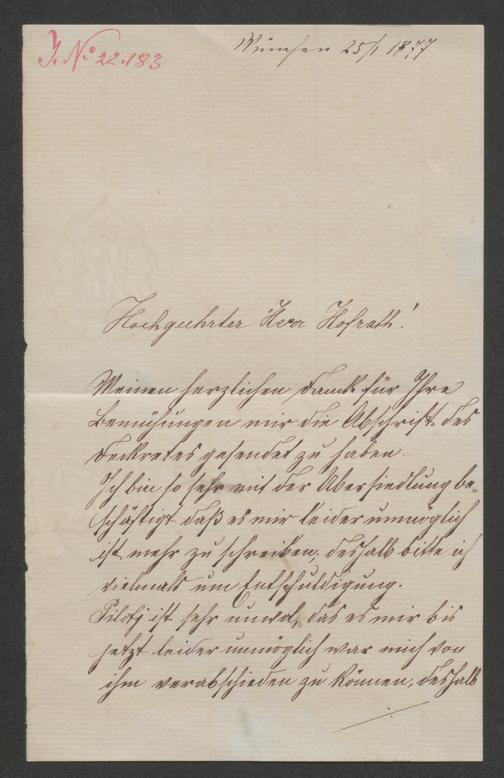 J. No 22.183
München 25/1 1877
Hochgeehrter Herr Hofrath!
Meinen herzlichen Dank für Ihre
Bemühungen mir die Abschrift des
Dekretes gesendet zu haben.
Ich bin so sehr mit der Übersiedlung be-
schäftigt daß es mir leider unmöglich
ist mehr zu schreiben, deshalb bitte ich
vielmals um Entschuldigung.
Piloty ist sehr unwol, das es mir bis
jetzt leider unmöglich war mich von
ihm verabschieden zu können, deshalb